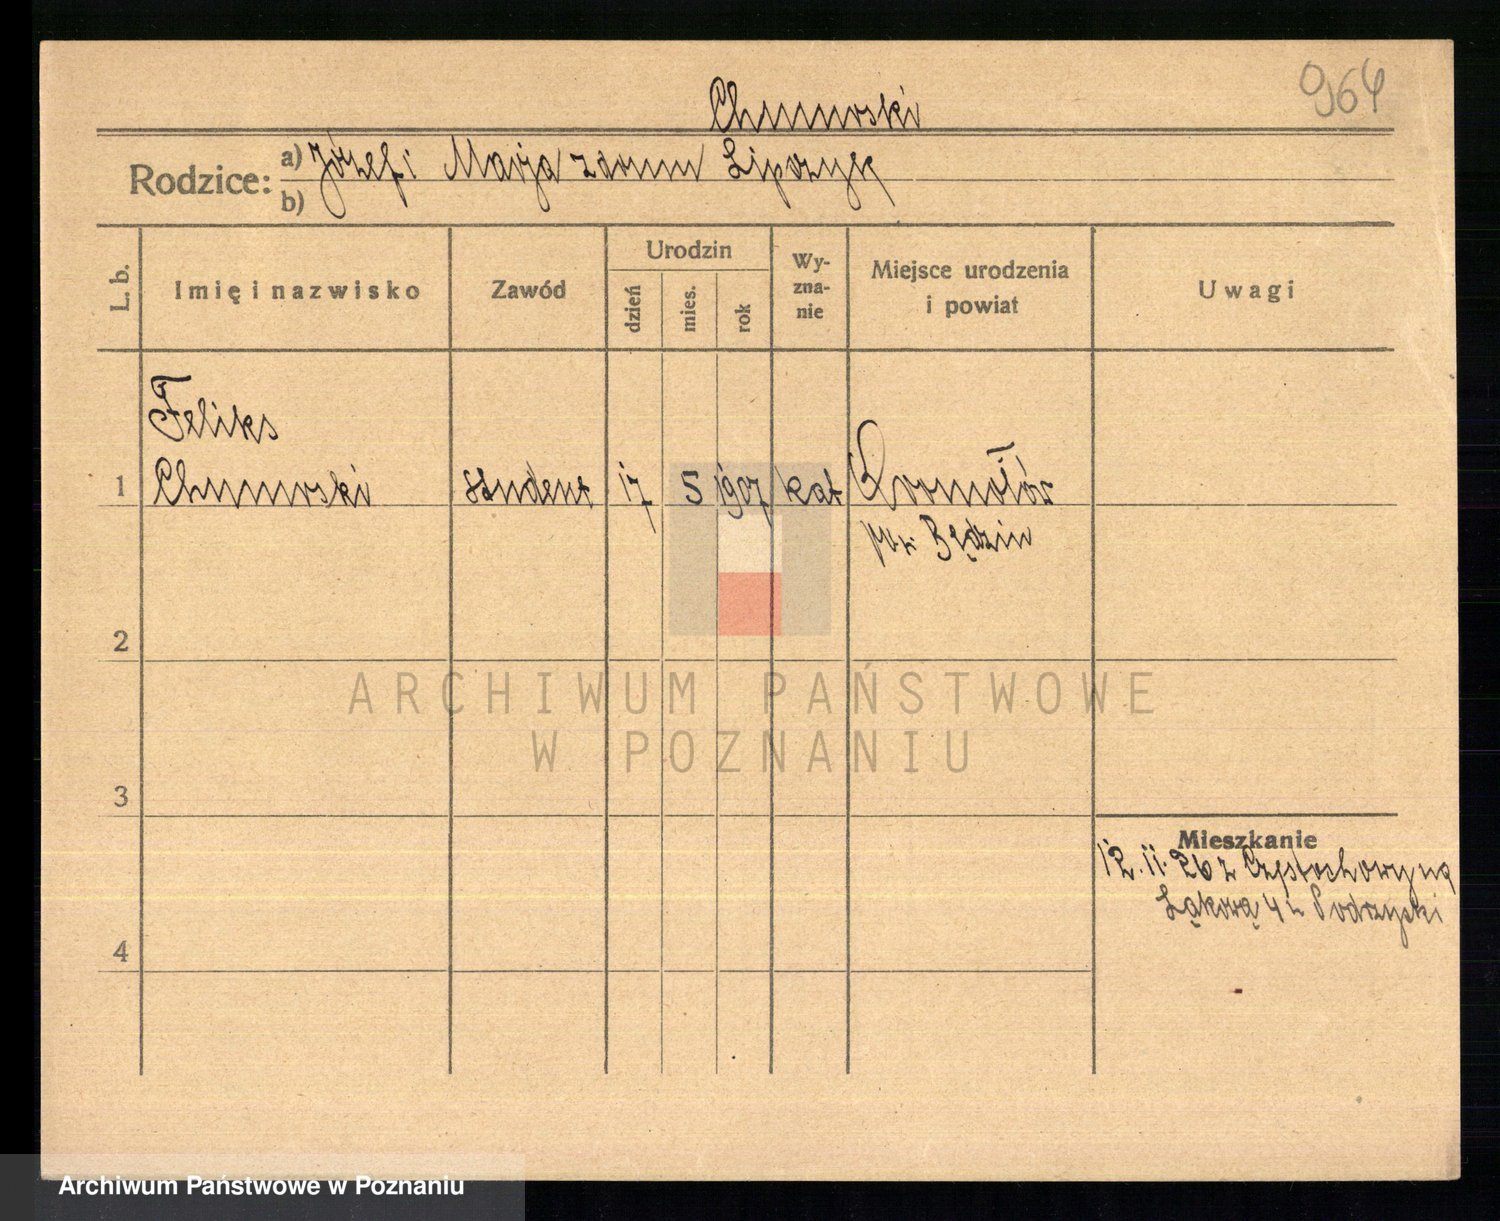 964
Chmurski
Rodzice:
a) Józef i Marja z domu Lipczyk
b)
L. b.
Imię i nazwisko
Zawód
Urodzin
dzień
mies.
rok
Wy-
zna-
nie
Miejsce urodzenia
i powiat
Uwagi
Feliks
1 Chmurski student 17 5 1907 kat Kromołów
pow. Będzin
2
3
4
Mieszkanie
12.11.26 z Częstochowy na
Łąkową 4
ARCHIWUM PAŃSTWOWE
W POZNANIU
Archiwum Państwowe w Poznaniu